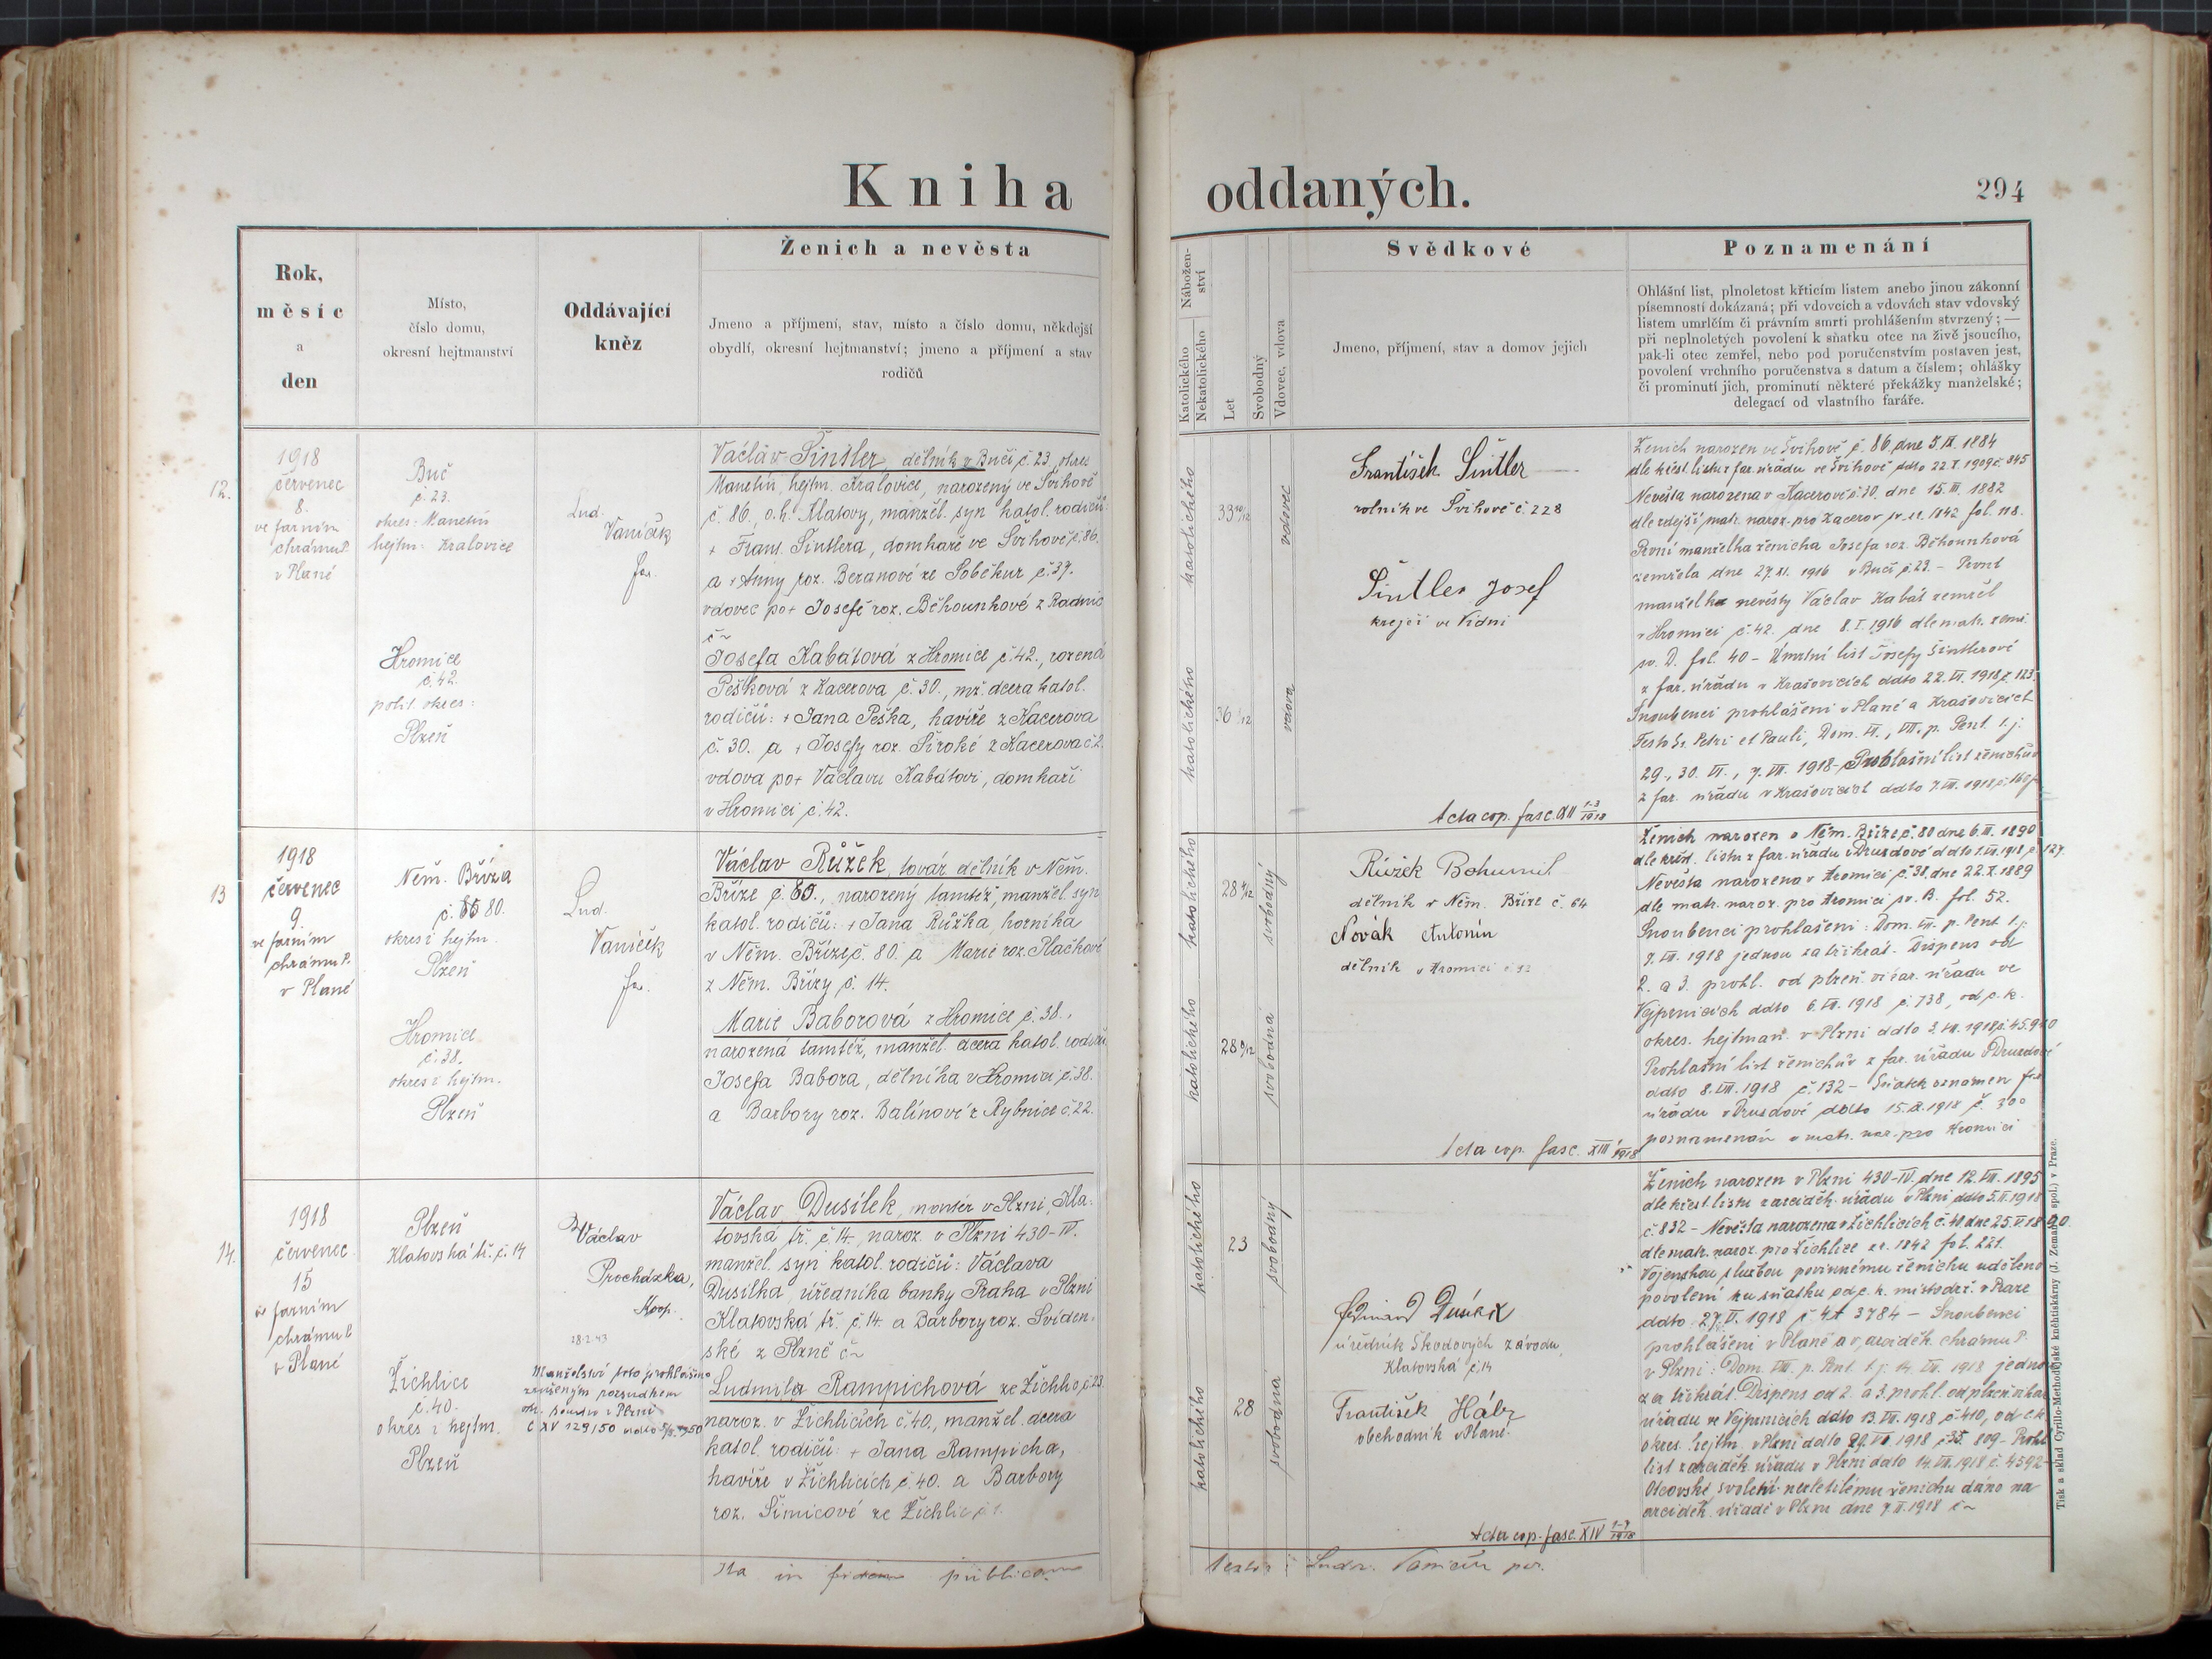 Kniha oddaných.
294
Rok,
měsíc
a
den
Místo,
číslo domu,
okresní hejtmanství
Oddávající
kněz
Ženich a nevěsta
Jmeno a příjmení, stav, místo a číslo domu, někdejší
obydlí, okresní hejtmanství; jmeno a příjmení a stav
rodičů
Katolického
Nekatolického
Nábožen-
ství
Let
Svobodný
Vdovec, vdova
Svědkové
Jmeno, příjmení, stav a domov jejich
Poznamenání
Ohlášní list, plnoletost křticím listem anebo jinou zákonní
písemností dokázaná; při vdovcích a vdovách stav vdovský
listem umrlčím či právním smrti prohlášením stvrzený; —
při neplnoletých povolení k sňatku otce na živě jsoucího,
pak-li otec zemřel, nebo pod poručenstvím postaven jest,
povolení vrchního poručenstva s datum a číslem; ohlášky
či prominutí jich, prominutí některé překážky manželské;
delegací od vlastního faráře.
12.
1918
červenec
8.
ve farním
chrámu P.
v Plané
Buč
č. 23.
okres: Manetín
hejtm: Kralovice
Hromice
č. 42.
polit. okres:
Plzeň
Lud.
Vaníček
far.
Václav Šintler, dělník v Buči č. 23, okres
Manetín, hejtm. Kralovice, narozený ve Švihově
č. 86, o.h. Klatovy, manžel. syn katol. rodičů:
+ Frant. Šintlera, domkaře ve Švihově č. 86.
a + Anny roz. Beranové ze Soběkur č. 37.
vdovec po + Josefě roz. Běhounkové z Radnic
č ~
Josefa Kabátová z Hromice č. 42., rozená
Pešková z Kacerova č. 30., mž. dcera katol.
rodičů: + Jana Peška, havíře z Kacerova
č. 30. a + Josefy roz. Široké z Kacerova č. 2.
vdova po + Václavu Kabátovi, domkaři
v Hromici č. 42.
katolického
33 10/12
vdovec
katolického
36
vdova
František Šintler
rolník ve Švihově č. 228
Šintler Josef
krejčí ve Vídni
Acta cop. fasc. XII 1-3/1918
Ženich narozen ve Švihově č. 86 dne 5. IX. 1884
dle křest. listu z far. úřadu ve Švihově ddto 22. X. 1909 č. 345
Nevěsta narozena v Kacerově č. 30. dne 15. III. 1882
dle zdejší mat. naroz. pro Kacerov fol. 118.
První manželka ženicha Josefa roz. Běhounková
zemřela dne 27. XI. 1916 v Buči č. 23. – První
manžel nevěsty Václav Kabát zemřel
v Hromici č. 42. dne 8. I. 1916 dle matr. zemř.
sv. D. fol. 40 – Úmrtní list Josefy Šintlerové
z far. úřadu v Krašovicích ddto 22. VI. 1918 č. 123.
Snoubenci prohlášeni v Plané a Krašovicích
Festo Ss. Petri et Pauli, Dom. VI., VII. p. Pent. t. j.
29., 30. VI., 7. VII. 1918 – Prohlašní list ženichův
z far. úřadu v Krašovicích ddto 7. VII. 1918 č.
13
1918
červenec
9.
ve farním
chrámu P.
v Plané
Něm. Bříza
č. 80.
okres i hejtm.
Plzeň
Hromice
č. 38.
okres i hejtm.
Plzeň
Lud.
Vaníček
far.
Václav Růžek, továr. dělník v Něm.
Bříze č. 80., narozený tamtéž, manžel. syn
katol. rodičů: + Jana Růžka, horníka
v Něm. Bříze č. 80. a Marie roz. Plačkové
z Něm. Břízy č. 14.
Marie Baborová z Hromice č. 38.,
narozená tamtéž, manžel. dcera katol. rodičů
Josefa Babora, dělníka v Hromici č. 38.
a Barbory roz. Balínové z Rybnice č. 22.
katolického
28 4/12
svobodný
katolického
28 9/12
svobodná
Růžek Bohumil
dělník v Něm. Bříze č. 64
Novák Antonín
dělník v Hromici č. 92
Acta cop. fasc. XIII 1918
Ženich narozen v Něm. Bříze č. 80 dne 6. III. 1890
dle křest. listu z far. úřadu v Druzdové ddto 1. VII. 1918 č. 127.
Nevěsta narozena v Hromici č. 38, dne 22. X. 1889
dle matr. naroz. pro Hromici sv. B. fol. 52.
Snoubenci prohlášeni: Dom. VII. p. Pent t. j.
7. VII. 1918 jednou za třikrát. Dispens od
2. a 3. prohl. od plzeň. vikar. úřadu ve
Vejprnicích ddto 6. VII. 1918 č. 738, od c. k.
okres. hejtman. v Plzni ddto 3. VII. 1918 č. 45.940
Prohlašní list ženichův z far. úřadu v Druzdové
ddto 8. VII. 1918 č. 132 – Sňatek oznámen far.
úřadu v Druzdové ddto 15. X. 1918 č. 300
poznamenán v matr. nar. pro Hromici
14.
1918
červenec
15
ve farním
chrámu P.
v Plané
Plzeň
Klatovská tř. č. 14
Žichlice
č. 40.
okres i hejtm.
Plzeň
Václav
Procházka,
koop.
28.2.43
Manželství toto prohlášeno
zrušeným rozsudkem
okr. soudu v Plzni
C XV 129/50
Václav Dusílek, montér v Plzni, Kla-
tovská tř. č. 14, naroz. v Plzni 430-IV.
manžel. syn katol. rodičů: Václava
Dusílka, úředníka banky Praha v Plzni
Klatovská tř. č. 14. a Barbory roz. Svíden-
ské z Plzně č ~
Ludmila Rampichová ze Žichlic č. 23.
naroz. v Žichlicích č. 40., manžel. dcera
katol. rodičů: + Jana Rampicha,
havíře v Žichlicích č. 40. a Barbory
roz. Šimicové ze Žichlic č. 1.
katolického
23
svobodný
katolického
28
svobodná
úředník Škodových závodu,
Klatovská č. 14
František Hálz
obchodník v Plané.
Acta cop. fasc. XIV 1-7/1918
Ženich narozen v Plzni 430-IV, dne 12. VII. 1895
dle křest. listu z arciděk. úřadu v Plzni ddto 5. II. 1918
č. 832 – Nevěsta narozena v Žichlicích č. 40 dne 25. V. 1890.
dle matr. naroz. pro Žichlice fol. 221.
Vojenskou službou povinnému ženichu uděleno
povolení ku sňatku od c. k. místodrž. v Praze
ddto 27. V. 1918 č. 3784 – Snoubenci
prohlášeni v Plané a v arciděk. chrámu P.
v Plzni: Dom. VIII. p. Pent. t. j. 14. VII. 1918 jednou
za třikrát. Dispens od 2. a 3. prohl. od plzeň. vikar.
úřadu ve Vejprnicích ddto 13. VII. 1918 č. 410, od c. k.
okres. hejtm. v Plzni ddto 1918 č. 35. 809 – Prohl.
list z arciděk. úřadu v Plzni ddto 14. VII. 1918 č. 4592 –
Otcovské svolení nezletilému ženichu dáno na
arciděk. úřadě v Plzni dne 7. II. 1918 č ~
Ita in fidem publicam
Ludv. Vaníček
Tisk a sklad Cyrillo-Methodějské knihtiskárny (J. Zeman a spol.) v Praze.